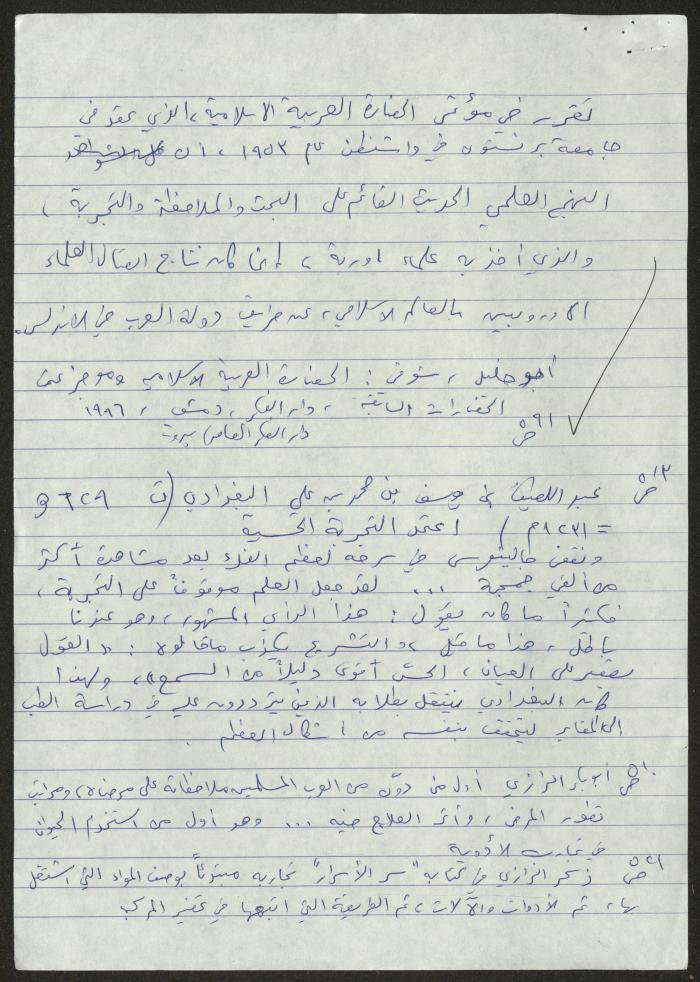 تقرر في مؤتمر الحضارة العربية الاسلامية، الذي عقد في
جامعة برنستون في واشنطن عام ١٩٥٣، ان
المنهج العلمي الحديث القائم على البحث والملاحظة والتجربة،
والذي أخذ به علماء اوربة، إنما كان نتاج اتصال العلماء
الاوروبيين بالعالم الاسلامي، عن طريق دولة العرب في الاندلس.
أبو خليل، شوقي: الحضارة العربية الاسلامية وموجز عن
الحضارات السابقة، دار الفكر، دمشق، ١٩٩٦
ص٩١ دار الفكر المعاصر بيروت
ص١٣ عبد اللطيف بن يوسف بن محمد بن علي البغدادي (ت ٦٢٩ هـ
= ١٢٣١م) اعتمد التجربة الحسية
ونقض جالينوس في سرحه لعظم الفك بعد مشاهدة أكثر
من ألفي جمجمة ... لقد جعل العلم موقوفاً على التجربة،
فكثيراً ما كان يقول: هذا الرأي المشهور، وهو عندنا
باطل، هذا ما قيل، والتشريح يكذب ما قالوه: «القول
يقصر على العيان، الحسّ أقوى دليلاً من السمع»، ولهذا
كان البغدادي ينتقل بطلابه الذين يترددون عليه في دراسة الطب
الى المقابر ليتحقق بنفسه من أشكال العظم.
ص١٠ أبو بكر الرازي أول من دوّن من العرب المسلمين ملاحظاته على مرضاه، ومراتب
تطور المرض، وأثر العلاج فيه ... وهو أول من استخدم الحيوان
في تجارب الأدوية
ص٢١ ذكر الرازي في كتابه "سر الأسرار" تجاربه مبتدئاً بوصف المواد التي اشتغل
بها، ثم الأدوات والآلات، ثم الطريقة التي اتبعها في تحضير المركب